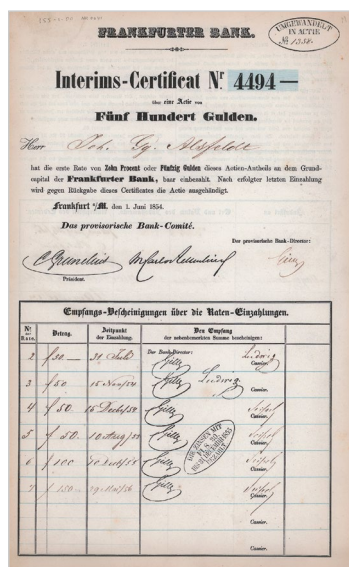 FRANKFURTER BANK.
UMGEWANDELT
IN ACTIE
№ 1338.
Interims-Certificat Nr 4494 —
über eine Actie von
Fünf Hundert Gulden.
Herr Joh. Gg. Alsfeldt
hat die erste Rate von Zehn Procent oder Fünfzig Gulden dieses Actien-Antheils an dem Grund-
capital der Frankfurter Bank, baar einbezahlt. Nach erfolgter letzten Einzahlung
wird gegen Rückgabe dieses Certificates die Actie ausgehändigt.
Frankfurt a/M. den 1. Juni 1854.
Das provisorische Bank-Comité.
Der provisorische Bank-Director:
Präsident.
Empfangs-Bescheinigungen über die Raten-Einzahlungen.
Nr der RATE. Betrag. Zeitpunkt der Einzahlung. Den Empfang der nebenbemerkten Summe bescheinigen:
2 f 50 — 31 Juli Der Bank-Director: Ludwig Cassier.
3 f 50 15 Nov/54 Ludwig Cassier.
4 f 50. 15 Decb/54 Cassier.
5 f 50. Cassier.
6 f 100 Cassier.
7 f 150. — Cassier.
DIE ZINSEN MIT
BIS 31 DEZEMBER 1855
BEZAHLT.
Cassier.
Cassier.